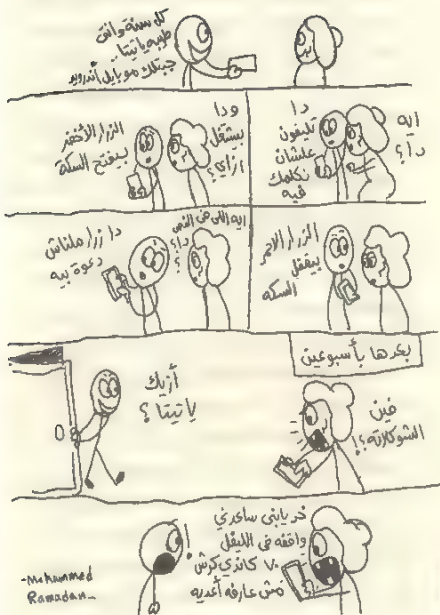 كل سنة وانتي
طيبه ياتيتا
جبتلك موبايل أندرويد
ايه
دا؟
دا
تليفون
علشان
نكلمك
فيه
ودا
بيشتغل
ازاي؟
الزرار الأخضر
بيفتح السكة
الزرار الاحمر
بيقفل
السكه
ايه اللي في النص
دا؟
؟
دا زرار ملناش
دعوة بيه
بعدها بأسبوعين
فين
الشوكلاته؟!
أزيك
ياتيتا؟
خد يابني ساعدني
واقفه في الليفل
٧٠ كاندي كرش
مش عارفه أعديه
!
-Mohammed
Ramadan-